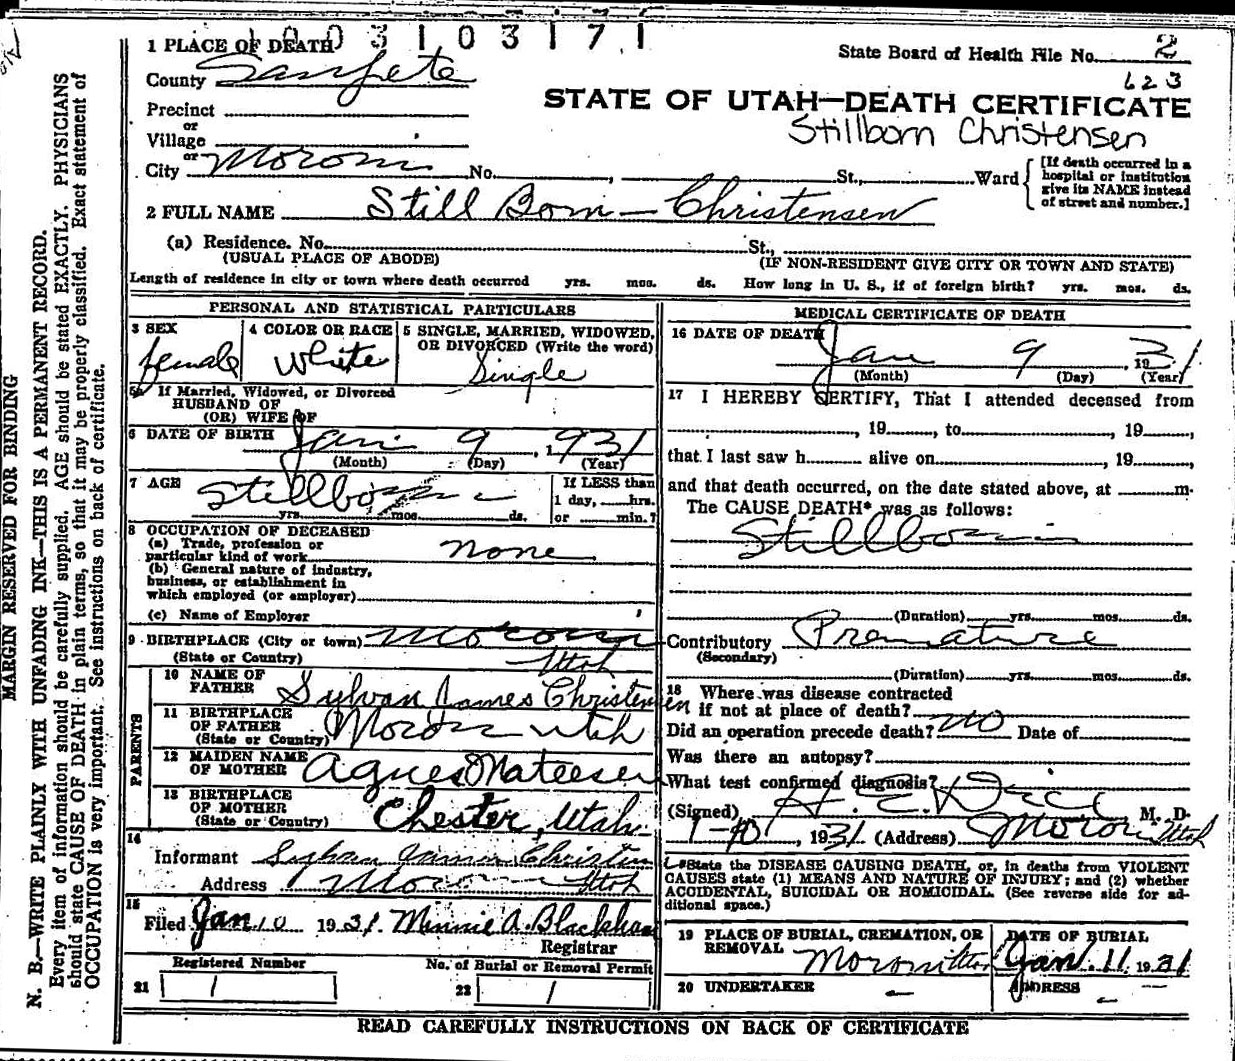 1003103171
1 PLACE OF DEATH
State Board of Health File No. 2
County Sanpete
623
STATE OF UTAH—DEATH CERTIFICATE
Precinct
or
Village
Stillborn Christensen
or
City Moroni No. , St., Ward
[If death occurred in a hospital or institution give its NAME instead of street and number.]
2 FULL NAME Still Born — Christensen
(a) Residence. No. St.,
(USUAL PLACE OF ABODE) (IF NON-RESIDENT GIVE CITY OR TOWN AND STATE)
Length of residence in city or town where death occurred yrs. mos. ds. How long in U. S., if of foreign birth? yrs. mos. ds.
PERSONAL AND STATISTICAL PARTICULARS
3 SEX female
4 COLOR OR RACE White
5 SINGLE, MARRIED, WIDOWED, OR DIVORCED (Write the word) Single
5a If Married, Widowed, or Divorced
HUSBAND OF
(OR) WIFE OF
6 DATE OF BIRTH Jan 9, 1931
(Month) (Day) (Year)
7 AGE Stillborn
yrs. mos. ds.
If LESS than
1 day, hrs.
or min.?
8 OCCUPATION OF DECEASED
(a) Trade, profession or
particular kind of work none
(b) General nature of industry,
business, or establishment in
which employed (or employer)
(c) Name of Employer
9 BIRTHPLACE (City or town) Moroni
(State or Country) Utah
PARENTS
10 NAME OF
FATHER Sylvan James Christensen
11 BIRTHPLACE
OF FATHER
(State or Country) Moroni Utah
12 MAIDEN NAME
OF MOTHER Agnes Mateesen
13 BIRTHPLACE
OF MOTHER
(State or Country) Chester, Utah
14
Informant Sylvan James Christen
Address Moroni Utah
15
Filed Jan 10 1931. Minnie A. Blackham
Registrar
Registered Number No. of Burial or Removal Permit
21 1 22 1
MEDICAL CERTIFICATE OF DEATH
16 DATE OF DEATH Jan 9, 1931
(Month) (Day) (Year)
17 I HEREBY CERTIFY, That I attended deceased from
, 19 , to , 19 ,
that I last saw h alive on , 19 ,
and that death occurred, on the date stated above, at m.
The CAUSE DEATH* was as follows:
Stillborn
(Duration) yrs. mos. ds.
Contributory Premature
(Secondary)
(Duration) yrs. mos. ds.
18 Where was disease contracted
if not at place of death?
Did an operation precede death? no Date of
Was there an autopsy?
What test confirmed diagnosis?
(Signed) M. D.
1-10, 1931 (Address) Moroni Utah
*State the DISEASE CAUSING DEATH, or, in deaths from VIOLENT
CAUSES state (1) MEANS AND NATURE OF INJURY; and (2) whether
ACCIDENTAL, SUICIDAL OR HOMICIDAL. (See reverse side for ad-
ditional space.)
19 PLACE OF BURIAL, CREMATION, OR
REMOVAL Moroni Utah
DATE OF BURIAL
Jan. 11 1931
20 UNDERTAKER —
ADDRESS —
READ CAREFULLY INSTRUCTIONS ON BACK OF CERTIFICATE
MARGIN RESERVED FOR BINDING
N. B.—WRITE PLAINLY WITH UNFADING INK—THIS IS A PERMANENT RECORD.
Every item of information should be carefully supplied. AGE should be stated EXACTLY. PHYSICIANS
should state CAUSE OF DEATH in plain terms, so that it may be properly classified. Exact statement of
OCCUPATION is very important. See instructions on back of certificate.